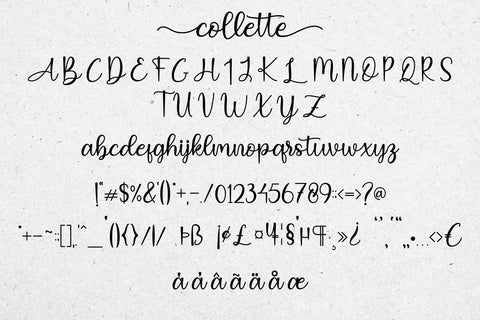 collette
ABCDEFGHIJKLMNOPQRS
TUVWXYZ
abcdefghijklmnopqrstuvwxyz
!"#$%&'()*+,-./0123456789:;<=>?@
*+-~:;[],"^_'(){}/|/ Þß ¡¢£¤¥¦§¨µ¶·¸»¿ ‘’‚“”„•…<>€
áàâãäåæ